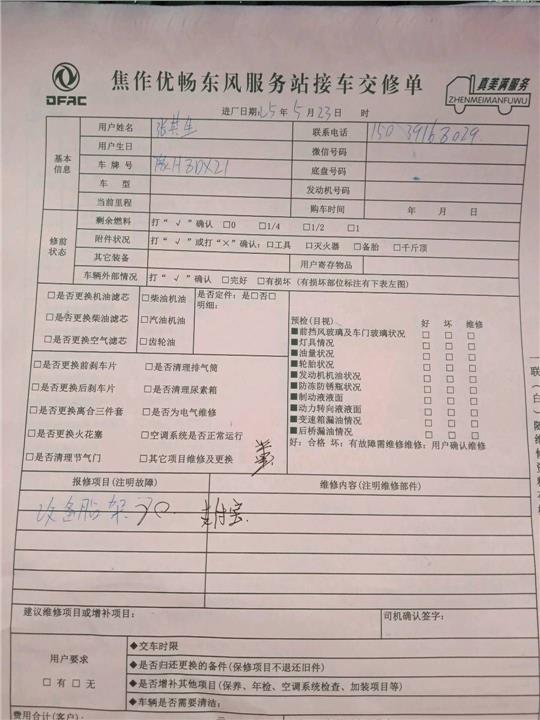 DFAC
焦作优畅东风服务站接车交修单
真美满服务
ZHENMEIMANFUWU
进厂日期 25 年 5 月 23 日 时
基本信息
用户姓名 联系电话 150
用户生日 微信号码
车牌号 H3DX21 底盘号码
车型 发动机号码
当前里程 购车时间 年 月 日
修前状态
剩余燃料 打“√”确认 □0 □1/4 □1/2 □1
附件状况 打“√”或打“×”确认：□工具 □灭火器 □备胎 □千斤顶
其它装备 用户寄存物品
车辆外部情况 打“√”确认 □完好 □有损坏（有损坏部位标注有下表左图）
□是否更换机油滤芯 □柴油机油 是否定件：是□否□
明细：
□是否更换柴油滤芯 □汽油机油
□是否更换空气滤芯 □齿轮油
预检(目视) 好 坏 维修
■前挡风玻璃及车门玻璃状况 □ □ □
■灯具情况 □ □ □
■油量状况 □ □ □
■轮胎状况 □ □ □
■发动机机油状况 □ □ □
■防冻防锈瓶状况 □ □ □
■制动液液面 □ □ □
■动力转向液液面 □ □ □
■变速箱漏油情况 □ □ □
■后桥漏油情况 □ □ □
好：合格 坏：有故障需维修维修：用户确认维修
□是否更换前刹车片 □是否清理排气筒
□是否更换后刹车片 □是否清理尿素箱
□是否更换离合三件套 □是否为电气维修
□是否更换火花塞 □空调系统是否正常运行
□是否清理节气门 □其它项目维修及更换
报修项目(注明故障) 维修内容(注明维修部件)
改备胎架 支付宝
建议维修项目或增补项目： 司机确认签字：
用户要求
□有 □无
◆交车时限
◆是否归还更换的备件(保修项目不退还旧件)
◆是否增补其他项目(保养、年检、空调系统检查、加装项目等)
◆车辆是否需要清洁：
费用合计(客户)： 元
一联
白
随
维
修